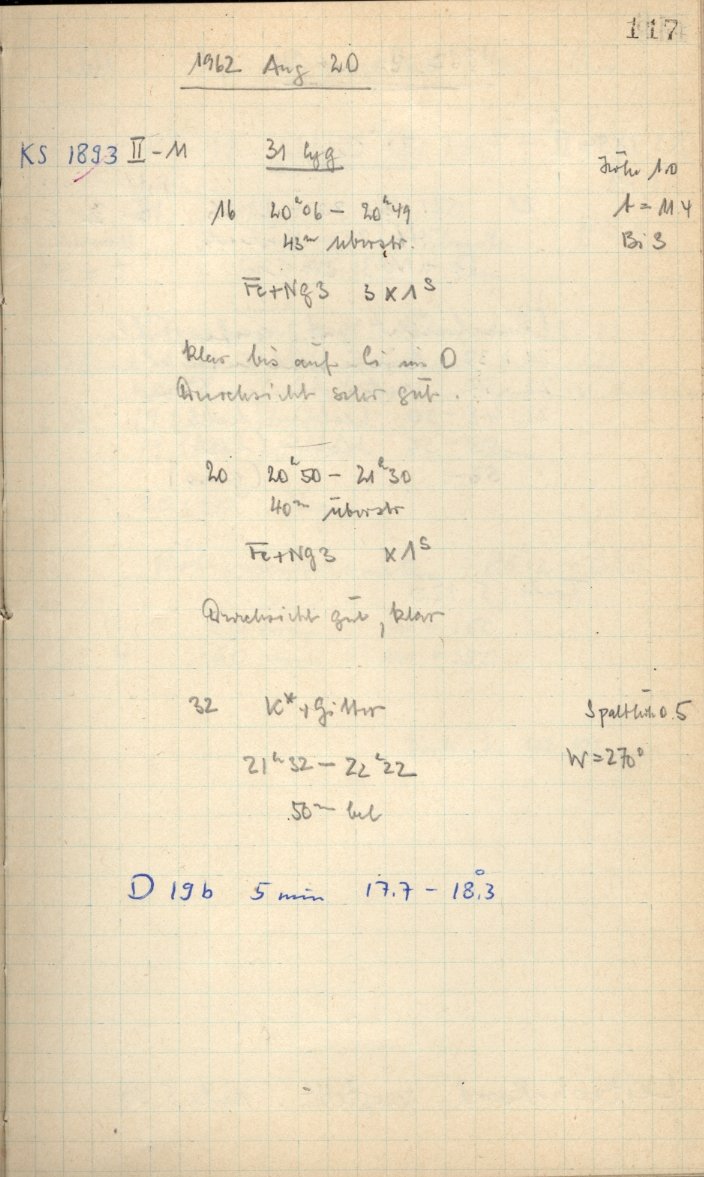 117
1962 Aug 20
KS 1893 II-11 31 Cyg
Höhe 1.0
16 20h06 - 20h49
t = 11 4
43m überstr.
Bi 3
Fe+Ng3 3 x 1s
klar bis auf Ci im O
Durchsicht sehr gut.
20 20h50 - 21h30
40m überstr
Fe+Ng3 x 1s
Durchsicht gut, klar
32 K*+Gitter
Spalthöhe 0.5
21h32 - 22h22
W = 270°
50m bel
D 19b 5 min 17.7 - 18°.3